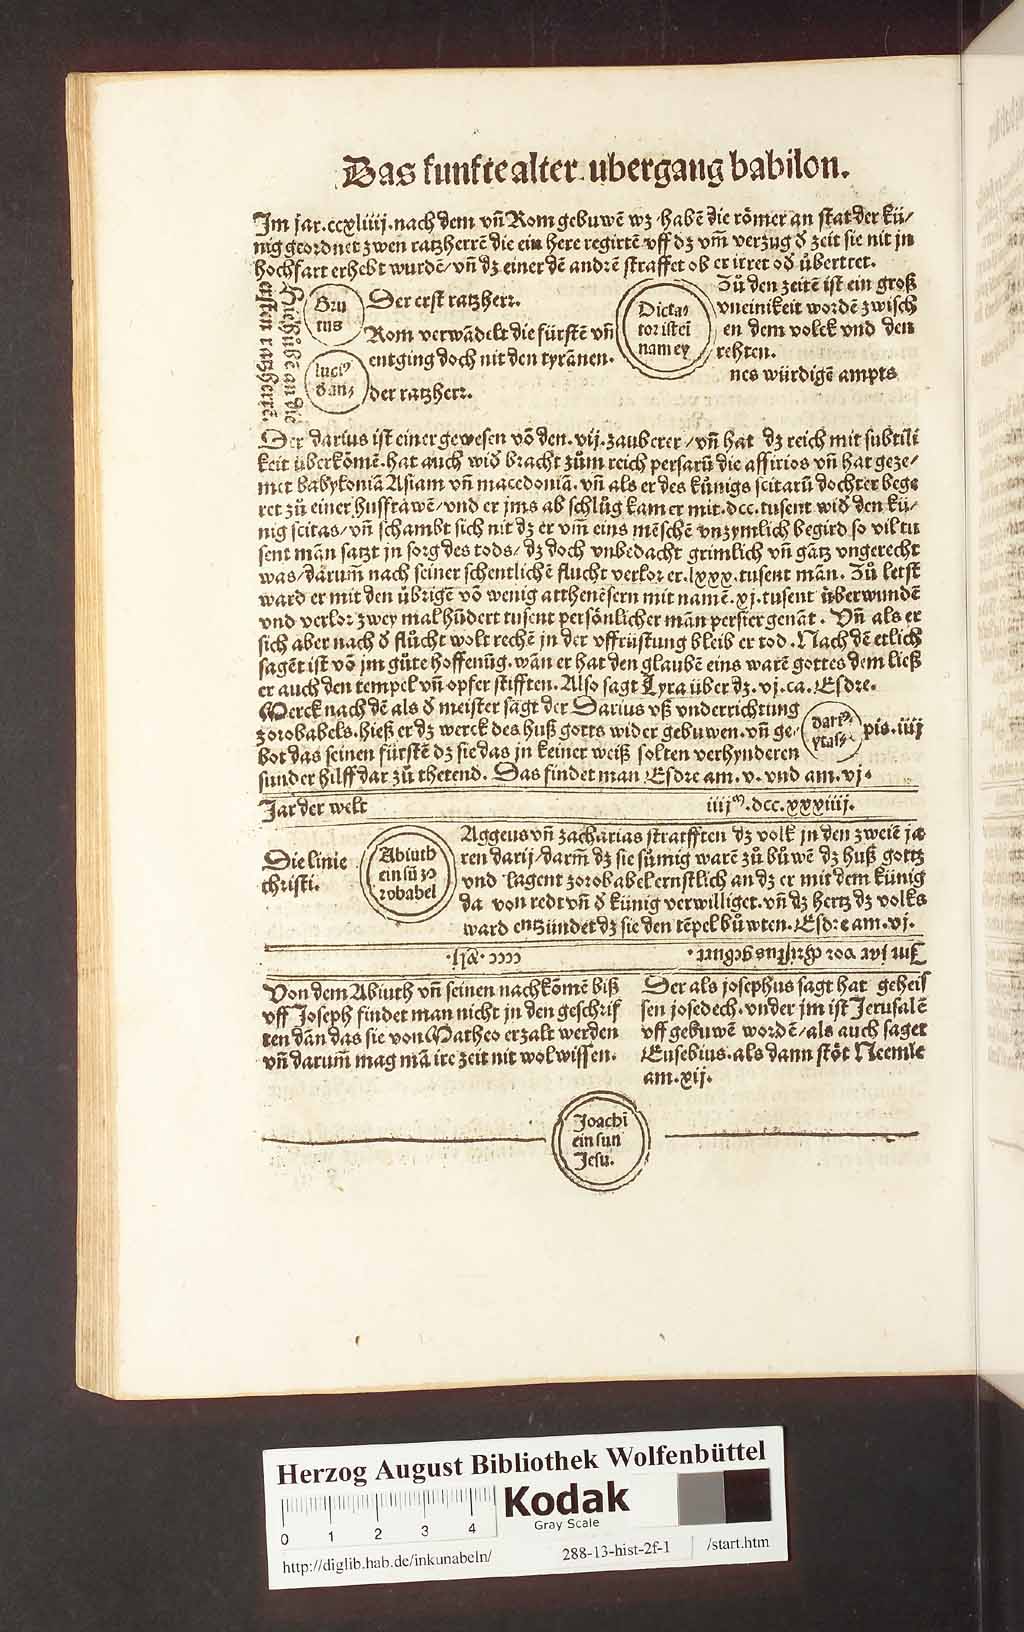 Das funfte alter ubergang babilon.
Im jar.ccxliiij.nach dem vñ Rom gebuwē wz habē die römer an stat der kü/
nig geordnet zwen ratzherrē die ein here regirtē vff dz vm̄ verzug d zeit sie nit jn
hochfart erhebt wurdē/vñ dz einer dē andrē straffet ob er irret od übertret.
Hie hübē an die
ersten ratzherrē.
Bru
tus
luciꝰ
Der erst ratzherr.
Rom verwādelt die fürstē vñ
entging doch nit den tyrānen.
der ratzherr.
Dicta⸗
tor ist eī
name y
Zů den zeitē ist ein groß
vneinikeit wordē zwisch
en dem volck vnd den
rehten.
nes würdigē ampts
Der darius ist einer gewesen vō den.vij.zauberer/vñ hat dz reich mit subtili
keit überkōmē.hat auch wid bracht zům reich persarū die assirios vñ hat geze/
met babyloniā Asiam vñ macedoniā.vñ als er des künigs scitarū dochter bege
ret zů einer husfrawē/vnd er jms ab schlůg kam er mit.dcc.tusent wid den kü/
nig scitas/vñ schambt sich nit dz er vm̄ eins mēschē vnzymlich begird so vil tu
sent man satzt jn sorg des tods/dz doch vnbedacht grimlich vñ gātz vngerecht
was/darum̄ nach seiner schentlichē flucht verlor er.lxxx.tusent mān. Zů letst
ward er mit den übrigē vō wenig atthenēsern mit namē.xj.tusent überwundē
vnd verlor zwey mal hūdert tusent persönlicher mān persier genāt. Vñ als er
sich aber nach d flucht wolt rechē jn der vffrüstung bleib er tod. Nach dē etlich
sagēt ist vō jm gůte hoffenūg.wan er hat den glaubē eins warē gottes dem ließ
er auch den tempel vñ opfer stifften. Also sagt Lyra über dz.vj.ca.Esdre.
Merck nach dē als d meister sagt der Darius vß vnderrichtung
zorobabels.hieß er dz werck des huß gotts wider gebuwen.vñ ge⸗
bot das seinen fürstē dz sie das jn keiner weiß solten verhynderen
sunder hilff dar zů thetend. Das findet man Esdre am.v.vnd am.vj.
dariꝰ
ytas⸗
pis.iiij
Jar der welt
iiijᵐ.dcc.xxxiiij.
Die linie
christi.
Abiuth
ein sū zo
robabel
Aggeus vñ zacharias strafften dz volk jn den zweiē ja
ren darij/darm̄ dz sie sümig warē zů büwē dz huß gottz
vnd lagent zorobabel ernstlich an dz er mit dem künig
da von redt vñ d künig verwilliget.vñ dz hertz dz volks
ward entzündet dz sie den tēpel bůwten.Esdre am.vj.
Im jar vor christus geburt.
cccc.
Von dem Abiuth vñ seinen nachkōmē biß
vff Joseph findet man nicht jn den geschrif
ten dān das sie von Matheo erzalt werden
vñ darum̄ mag mā ire zeit nit wol wissen.
Der als josephus sagt hat geheis
sen josedech.vnder jm ist Jerusalē
vff gebuwē wordē/als auch saget
Eusebius.als dann stöt Neemie
am.xij.
Joachi
ein sun
Jesu.
Herzog August Bibliothek Wolfenbüttel
0 1 2 3 4
Kodak
Gray Scale
http://diglib.hab.de/inkunabeln/
288-13-hist-2f-1
/start.htm